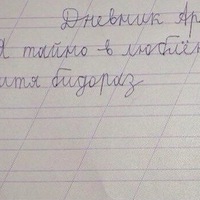 Дневник Ар
Я тайно влюблён
итя бидораз